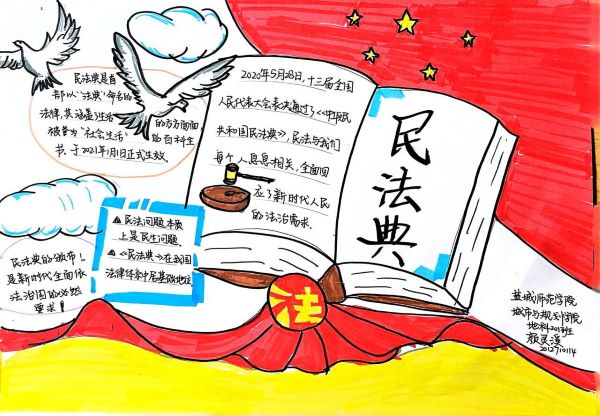 民法典是首
部以“法典”命名的
法律，其涵盖了生活的方方面面，
被誉为“社会生活的百科全
书，于2021年1月1日正式生效.
2020年5月28日，十三届全国
人民代表大会表决通过了《中华人民
共和国民法典》，民法与我们
每个人息息相关，全面回
应了新时代人民
的法治需求.
民法典
▲民法问题本质
上是民生问题
▲《民法典》在我国
法律体系中居基础地位
民法典的颁布！
是新时代全面依
法治国的必然
要求！
法
盐城师范学院
城市与规划学院
地科201班
顾灵溪